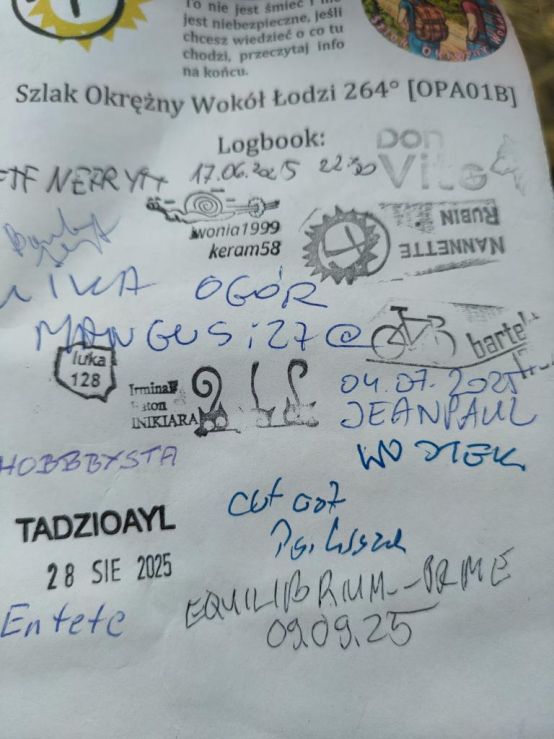 To nie jest śmieć i nie
jest niebezpieczne, jeśli
chcesz wiedzieć o co tu
chodzi, przeczytaj info
na końcu.
Szlak Okrężny Wokół Łodzi 264° [OPA01B]
Logbook:
NEFRYT 17.06.2025 22:30
DON
Vito
wonia1999
keram58
NANNETTE
RUBIN
OGÓR
MANGUSi27@
bartek
luka
128
INIKIARA
04.07.2025
JEANPAUL
HOBBBYSTA
WOJTEK
TADZIOAYL
28 SIE 2025
Entete
EQUILIBRIUM--PRME
09.09.25